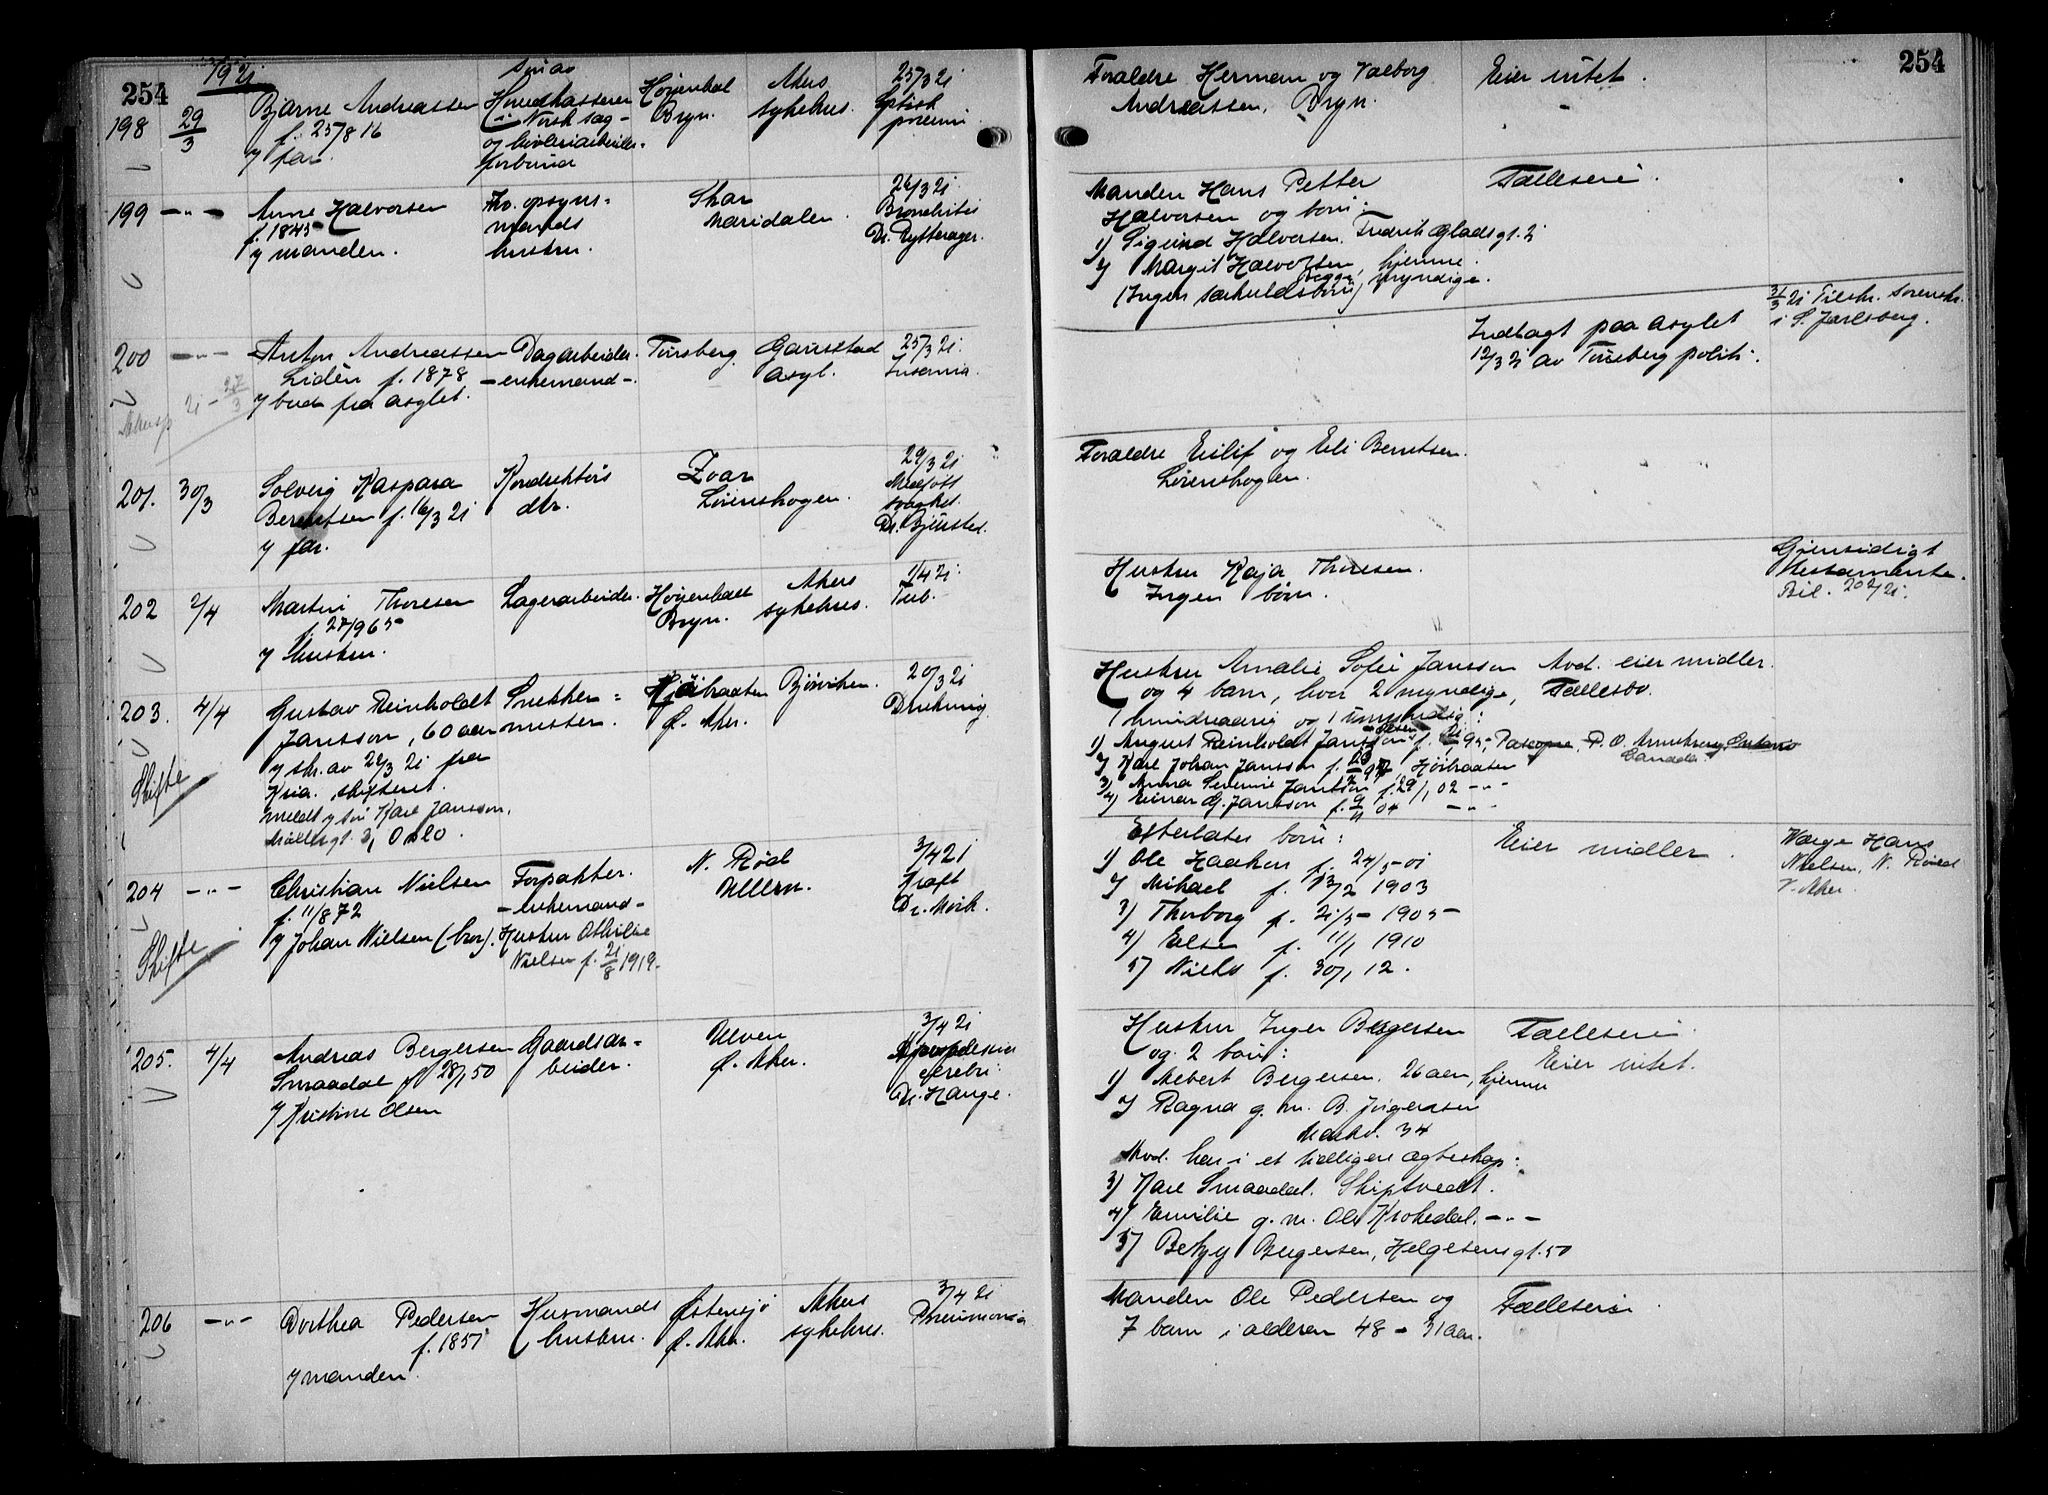 254
1921
198 29/3 Bjarne Andreassen
f. 25/8 16
v/ far.
søn av
Hovedkasserer
i Norsk sag-
og høvleriarbeider-
forbund
Høyenhal
Bryn.
Akers
sykehus.
25/3 21
Septisk
pneumi.
199 -"- Anne Halvorsen
f. 1845
v/ manden.
opsyns-
mands
hustru.
Skar
Maridalen.
26/3 21
Bronchitis
Dr. Rytterager.
200 -"- Anton Andreassen
Lidén f. 1878
v/ bud fra asylet.
27/3
Dagarbeider.
-enkemand-.
Tønsberg.
Gaustad
Asyl.
25/3 21.
Insania.
201. 30/3 Solveig Kaspara
Berentsen f. 16/3 21
v/ far.
Konduktørs
dtr.
Zoar
Lørenskogen.
29/3 21
Medfødt
svaghet.
Dr. Bjønsted.
202 2/4 Martin Thoresen
f. 27/9 65
v/ hustru.
Lagerarbeider.
Høyenhall
Bryn.
Akers
sykehus.
1/4 21.
Tub.
203. 4/4 Gustav Reinholdt
Jansson, 60 aar
v/ skr. av 29/3 21 fra
Kria. skifteret.
meldt v/ søn Karl Jansson,
Møllergt. 3, Oslo.
Skifte
Snekker-
mester.
Høibraaten
Ø. Aker.
Bjørviken.
20/3 21
Drukning.
204 -"- Christian Nielsen
f. 11/8 72
v/ Johan Nielsen (bror).
Skifte
Forpakter.
-enkemand-
Hustru Othilie
Nielsen f. 21/8 1919.
N. Rød
Ullern.
3/4 21
Kræft
Dr. Mork.
205. 4/4 Andreas Bergersen
Smaadal f. 28/1 50
v/ Kristine Olsen
Gaardsar-
beider.
Ulven
Ø. Aker.
3/4 21
cerebri.
Dr. Hauge.
206 -"- Dorthea Pedersen
f. 1857
v/ manden.
Husmands
hustru.
Østensjø
Ø. Aker.
Akers
sykehus.
3/4 21
Pneumonia
254
Forældre Herman og Valborg
Andreassen, Bryn.
Eier intet.
Manden Hans Petter
Halvorsen og børn:
1) Sigurd Halvorsen, Fredrik Gladsgt. 2
2) Margit Halvorsen, hjemme.
begge myndige.
(Ingen særkuldsbørn)
Fælleseie.
Indlagt paa asylet
12/3 21 av Tønsberg politi.
31/3 21 Tilskr. sorenskr.
i S. Jarlsberg.
Forældre Eilif og Eli Berntsen.
Lørenskogen.
Hustru Kaja Thoresen.
Ingen børn.
Gjensidigt
testamente.
Bil. 202/21.
Hustru Amalie Sofie Jansson
og 4 barn, hvor 2 myndige,
1 mindreaarig og 1 umyndig:
1) August Reinholdt Jansson f. 95, P.O. Armstrong, Ontario
Canada.
2) Karl Johan Jansson f. 97, Høibraaten
3) Anna Severine Jansson f. 29/1 02 -"-
4) Einar G. Jansson f. 9/11 04 -"-
Avd. eier midler.
Fællesbo.
Efterlater børn:
1) Ole Haakon f. 24/5 01
2) Mikael f. 13/2 1903
3) Thorborg f. 21/5 1905
4) Else f. 11/1 1910
5) Niels f. 30/1 12.
Eier midler.
Værge Hans
Nielsen, N. Røed
V. Aker.
Hustru Inger Bergersen
og 2 børn:
1) Albert Bergersen. 26 aar, hjemme
2) Ragna g. m. B. Jørgensen
Markv. 34
Avd. har i et tidligere ægteskap:
3) Karl Smaadal. Skiptvedt.
4) Emilie g. m. Ole Krokedal. -"-
5) Betzy Bergersen, Helgesens gt. 50
Fælleseie.
Eier intet.
Manden Ole Pedersen og
7 barn i alderen 48 - 31 aar.
Fælleseie.